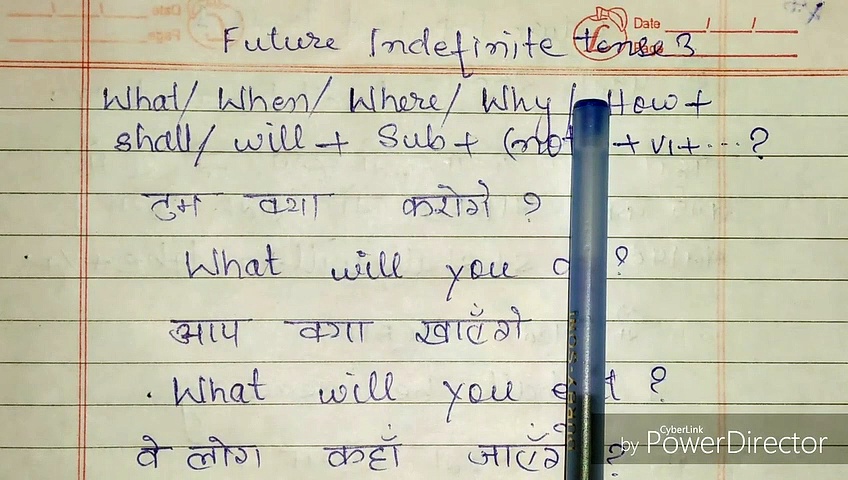 Date / /
Future Indefinite tense 3
What/ When/ Where/ Why/ How +
shall/ will + Sub + (not + V1 + ... ?
तुम क्या करोगे ?
What will you ?
आप क्या खाएँगे
What will you ?
वे लोग कहाँ ?
CyberLink
by PowerDirector